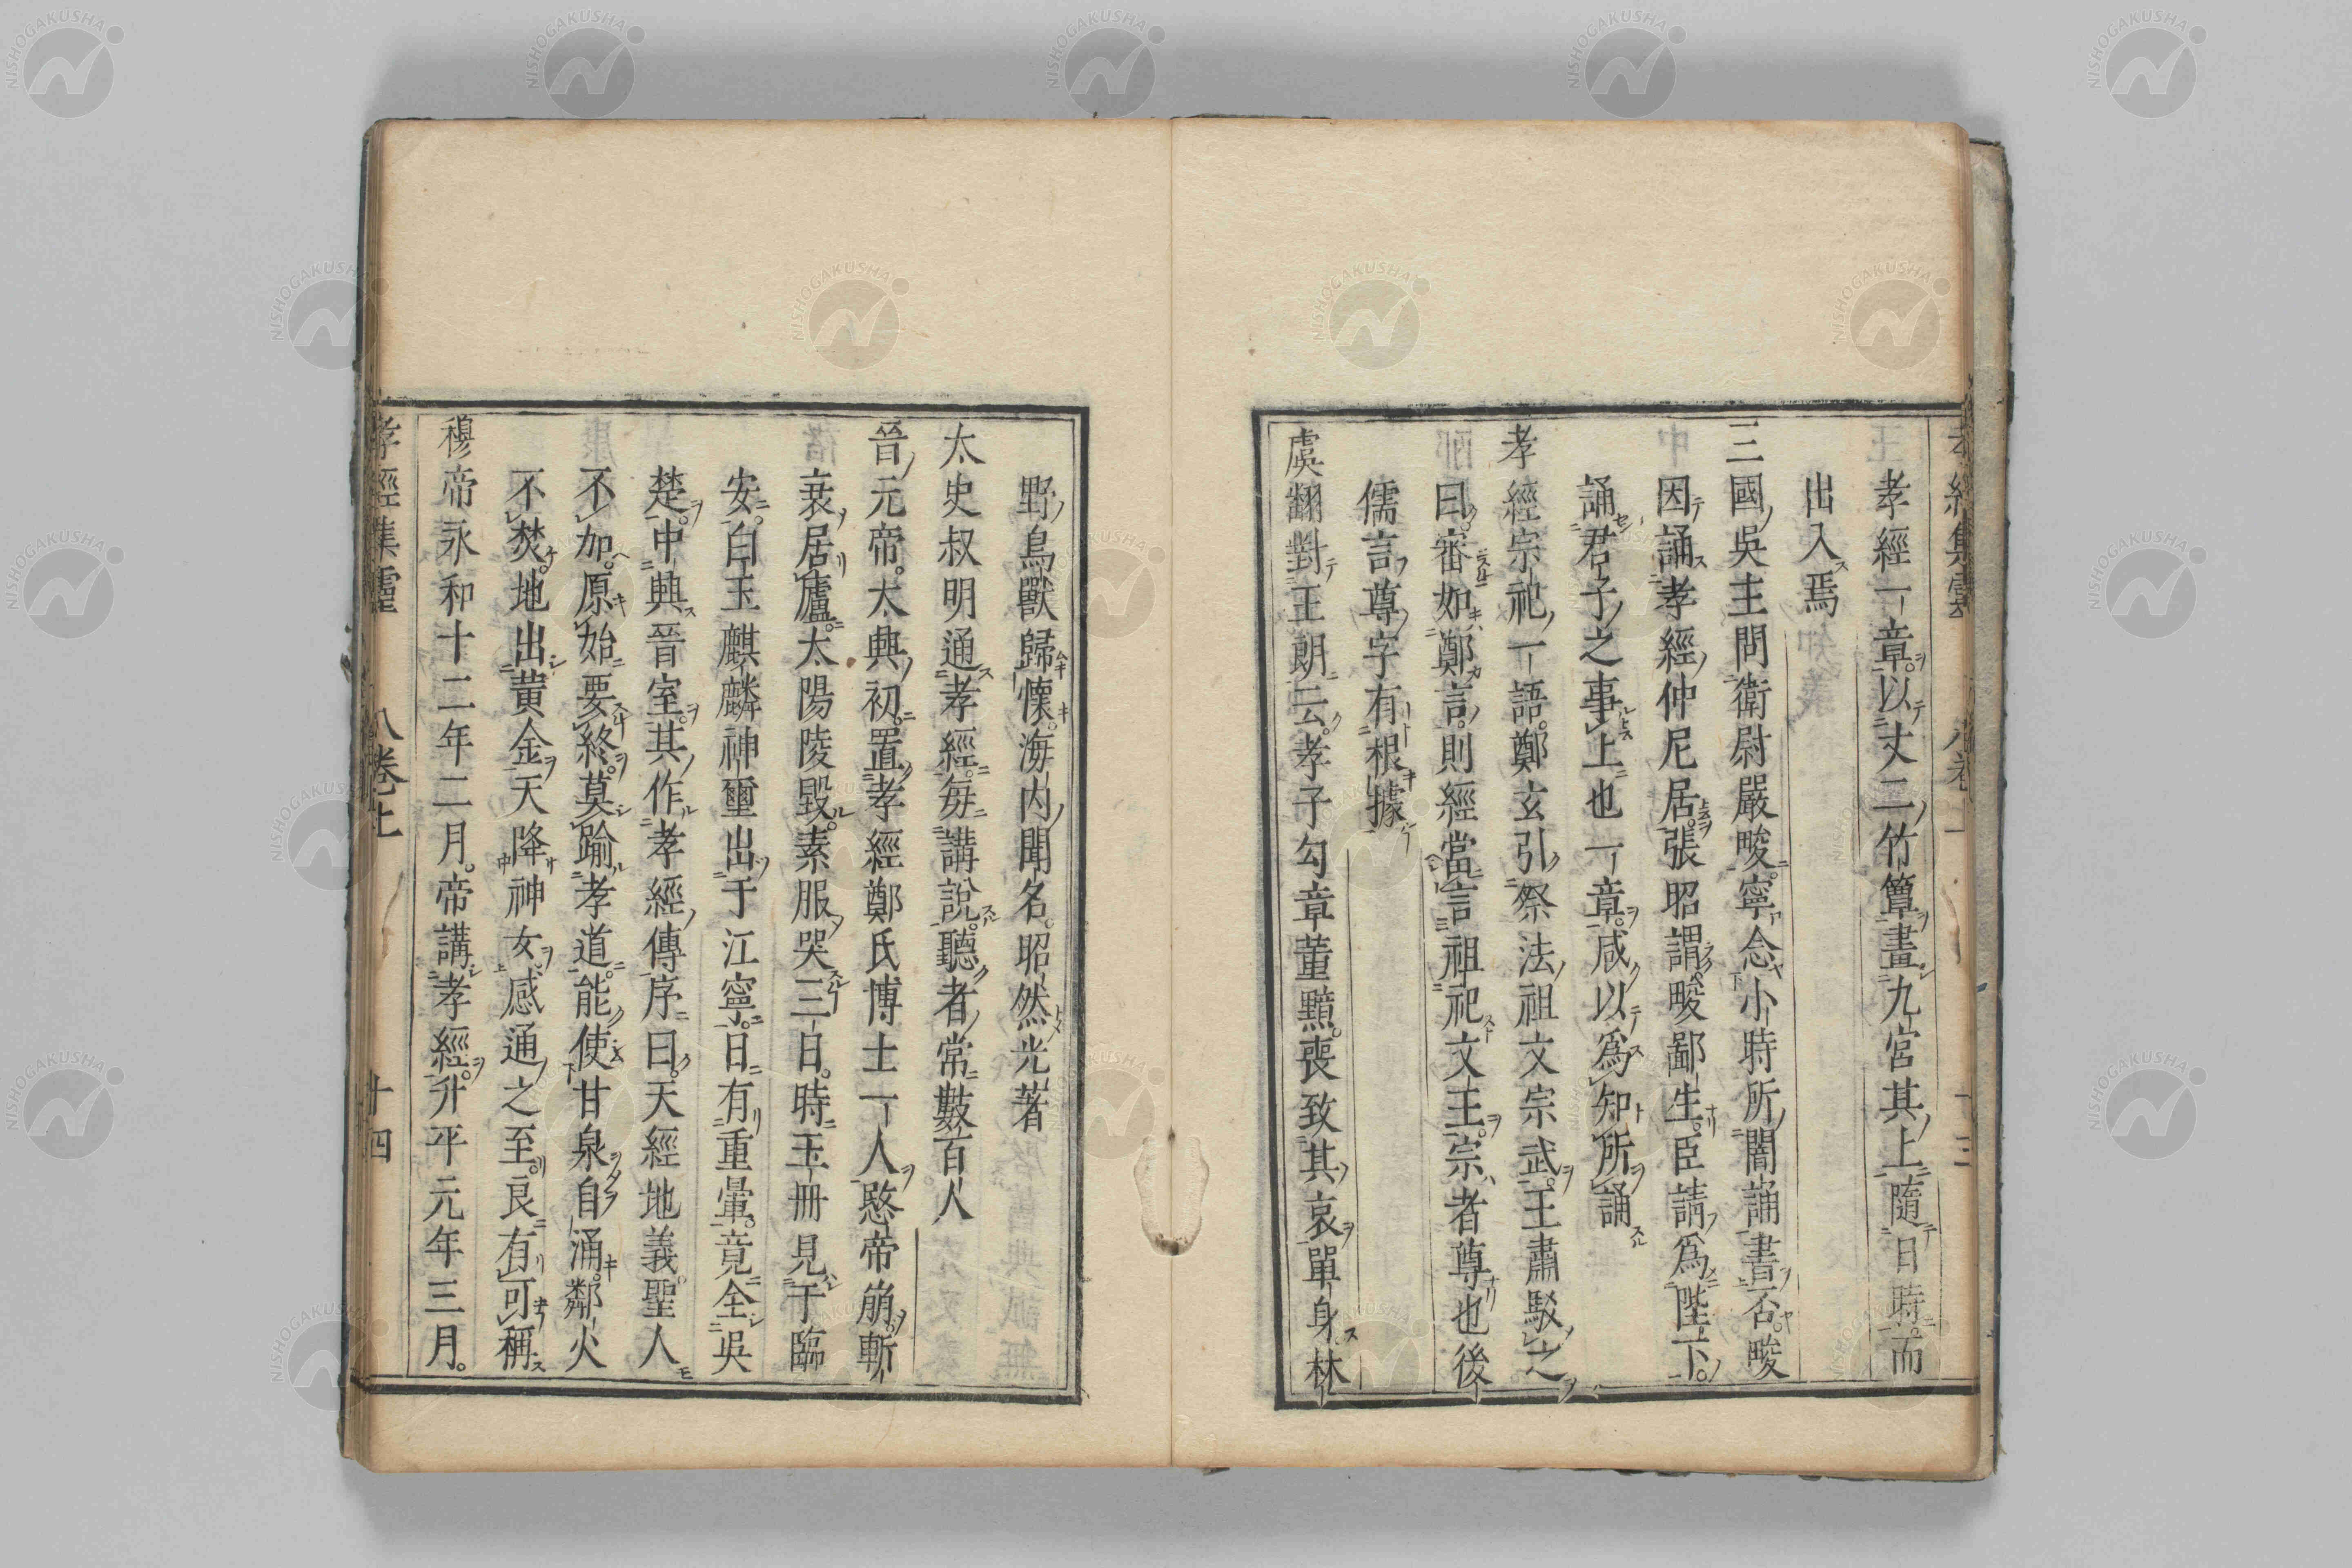 孝經一章以丈二竹簟畫九宮其上隨日時而
出入焉
三國吳主問衛尉嚴畯寧念小時所闇誦書否畯
因誦孝經仲尼居張昭謂畯鄙生臣請爲陛下
誦君子之事上也一章咸以爲知所誦
孝經宗祀一語鄭玄引祭法祖文宗武王肅駁之
曰審如鄭言則經當言祖祀文王宗者尊也後
儒言尊字有根據
虞翻對王朗云孝子勾章董黯喪致其哀單身林
野鳥獸歸懷海内聞名昭然光著
太史叔明通孝經每講說聽者常數百人
晉元帝太興初置孝經鄭氏博士一人愍帝崩斬
衰居廬太陽陵毀素服哭三日時玉冊見于臨
安白玉麒麟神璽出于江寧日有重暈竟全吳
楚中興晉室其作孝經傳序曰天經地義聖人
不加原始要終莫踰孝道能使甘泉自涌鄰火
不焚地出黃金天降神女感通之至良有可稱
穆帝永和十二年二月帝講孝經升平元年三月
孝經集靈 八卷上 十四
NISHOGAKUSHA